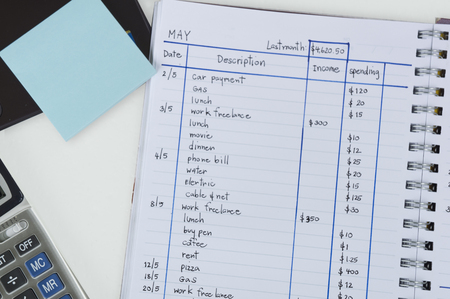 MAY Last month: $4,620.50
Date Description Income spending
2/5 car payment $120
GAS $20
lunch $15
3/5 work freelance $300
lunch $10
movie $12
dinner $25
4/5 phone bill $15
water $25
elertric $125
cable & net $30
8/9 work freelance $350
lunch $10
buy pen $1
coffee $25
rent $400
12/5 pizza $12
18/5 GAS $20
20/5 work freelance
OFF
MC
MR